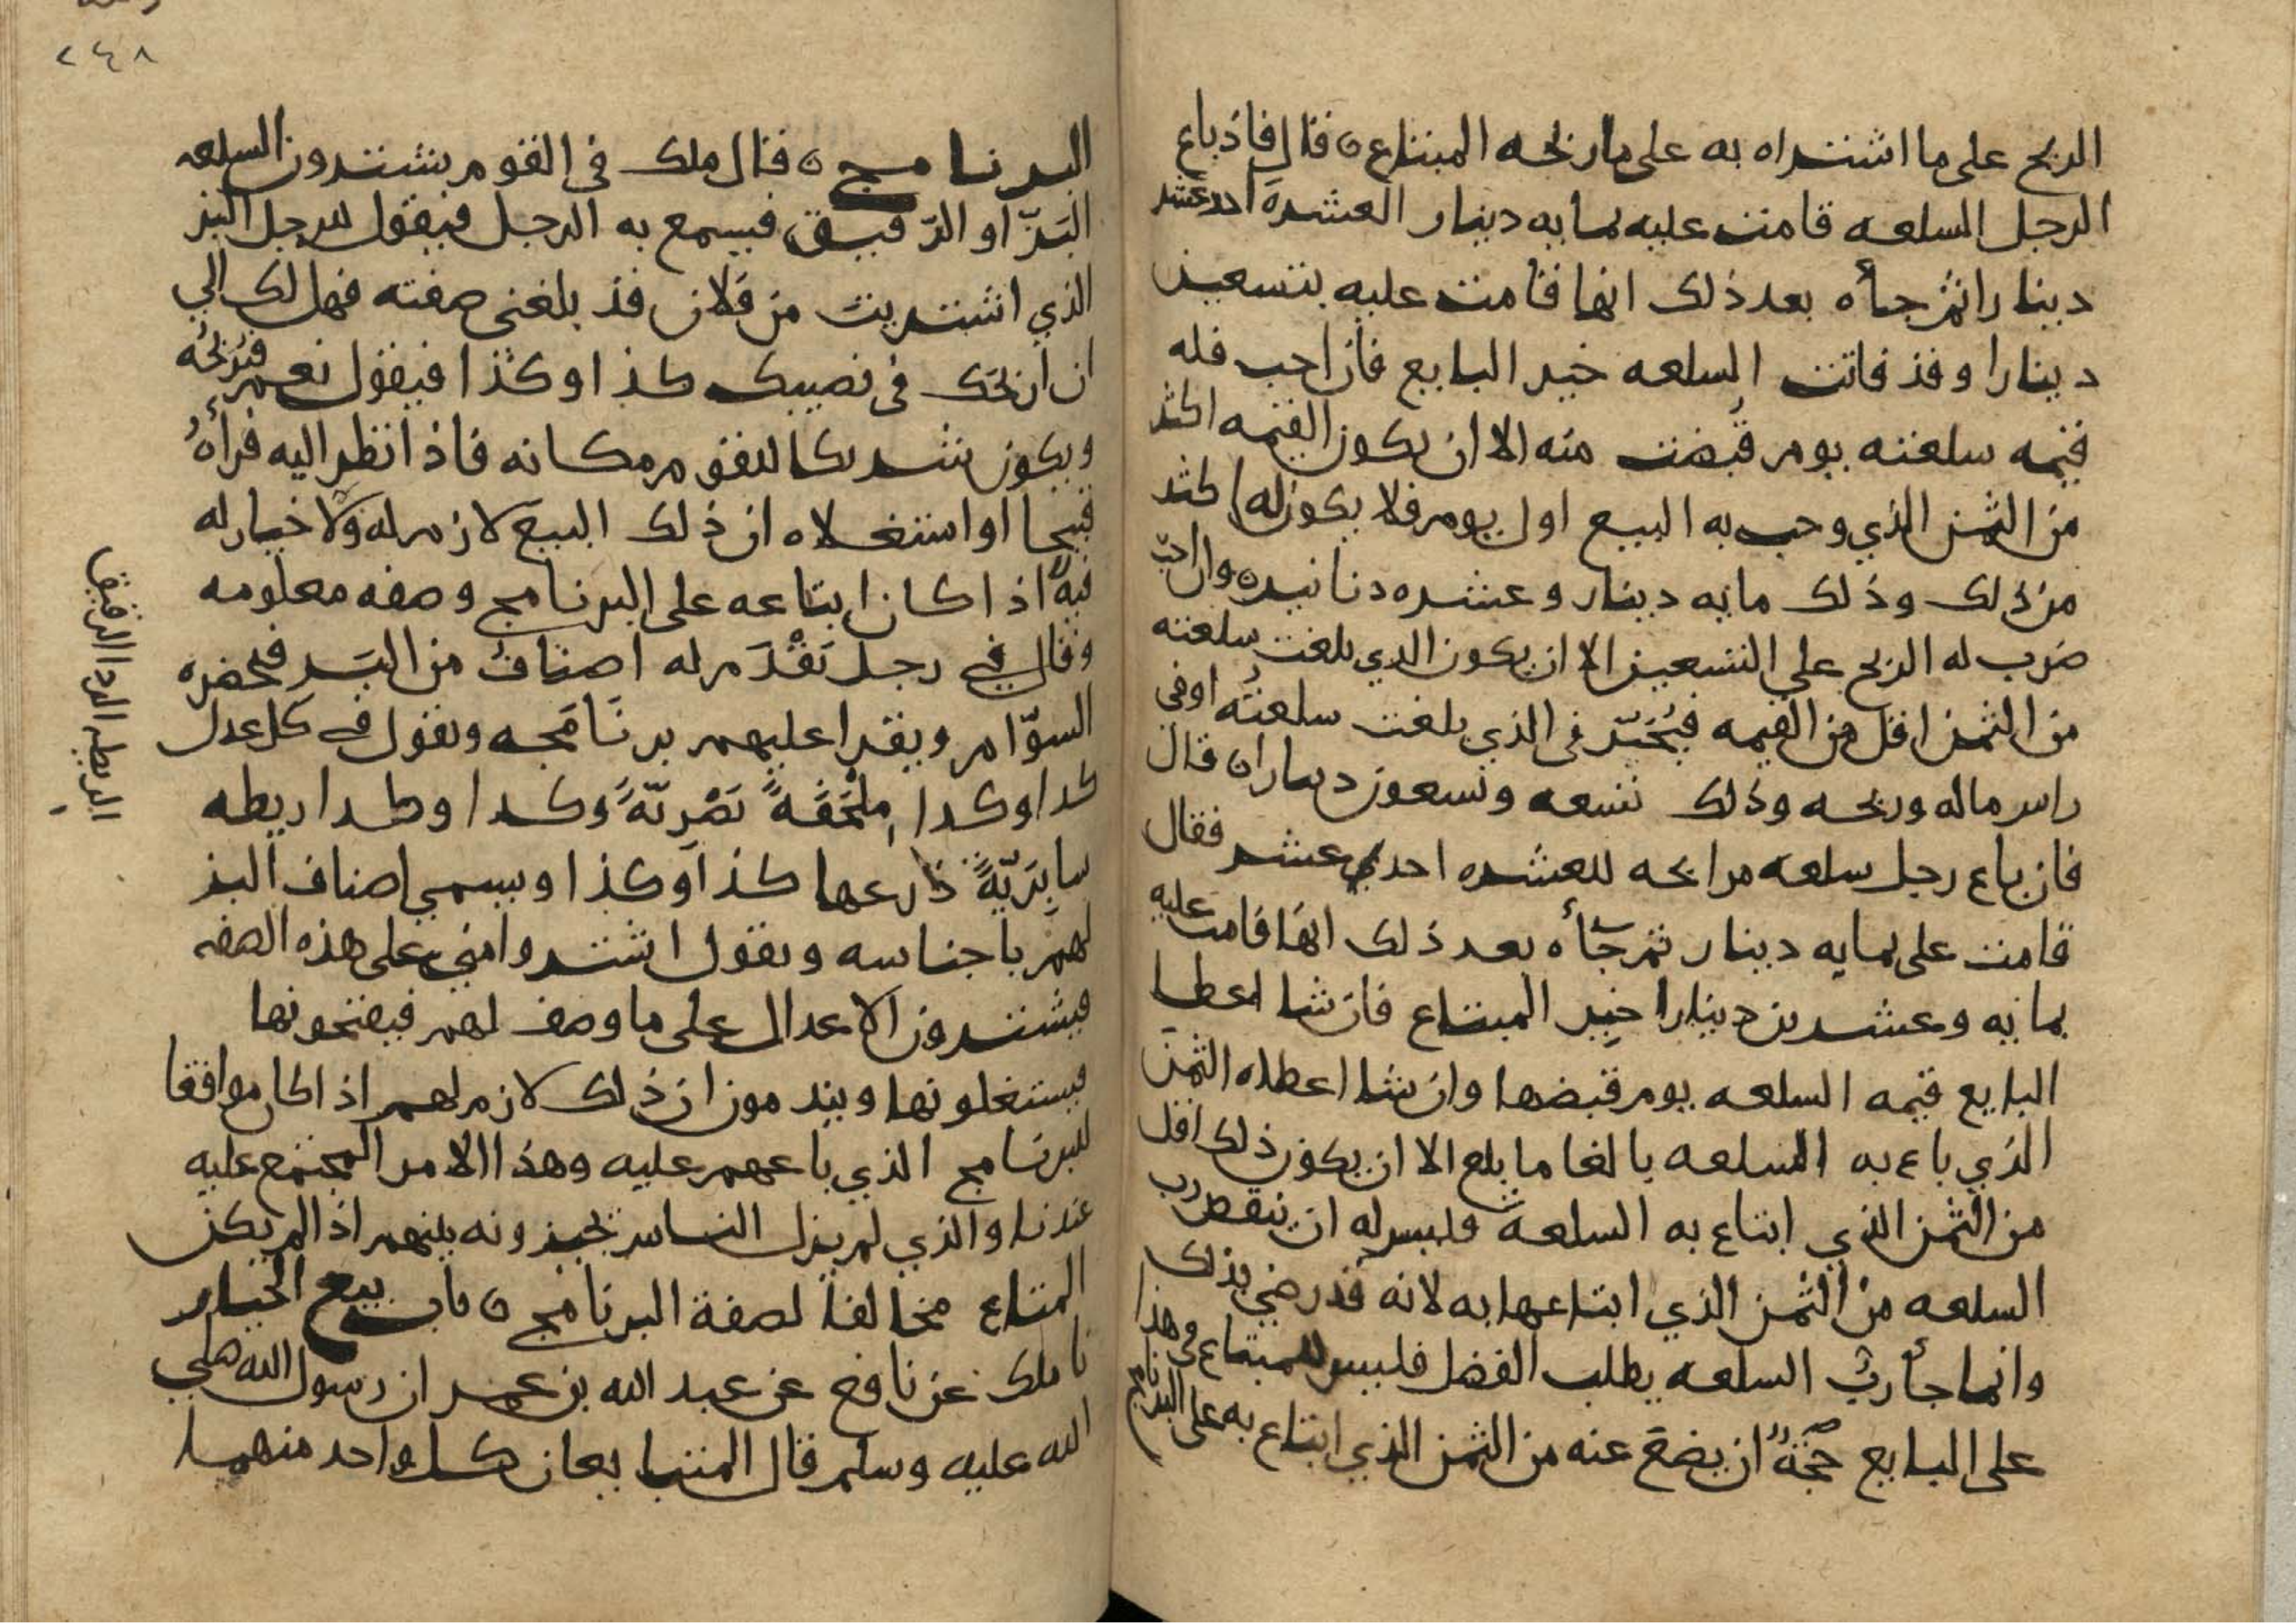 الربح على ما اشتراه به على ما ربحه المبتاع ه قال فاذ باع
الرجل السلعه قامت عليه بمايه دينار العشرة احد عشر
دينارا ثم جاه بعد ذلك انها قامت عليه بتسعين
دينارا وقد فاتت السلعه خير البايع فان احب فله
قيمه سلعته يوم قبضت منه الا ان يكون القيمه اكثر
من الثمن الذي وجب به البيع اول يوم فلا يكون له اكثر
من ذلك وذلك مائه دينار وعشره دنانيره وان احب
ضرب له الربح على التسعين الا ان يكون الذي بلغت سلعته
من الثمن اقل من القيمه فيُخيّر في الذي بلغت سلعتُه اوفي
راس ماله وربحه وذلك تسعه وتسعون دينارا ه قال
فان باع رجل سلعه مرابحه للعشره احدي عشر فقال
قامت على بمايه دينار ثم جاه بعد ذلك انها قامت عليه
بمائه وعشرين دينارا خير المبتاع فان شا اعطا
البايع قيمه السلعه يوم قبضها وان شا اعطاه الثمن
الذي باع به السلعه بالغا ما بلغ الا ان يكون ذلك اقل
من الثمن الذي ابتاع به السلعة فليس له ان ينقص رب
السلعه من الثمن الذي ابتاعها به لانه قد رضي بذلك
وانما جا ربُّ السلعه يطلب الفضل فليس للمبتاع في هذا
على البايع حجّةٌ ان يضع عنه من الثمن الذي ابتاع به على البرنامج
٢٤٨
البرنامج ه قال ملك في القوم يشترون السلعه
البَزّ او الرّقيق فيسمع به الرجل فيقول للرجل البز
الذي اشتريت من فلان قد بلغني صفته فهل لك الي
ان اربحك في نصيبك كذا وكذا فيقول نعم فيُربحُه
ويكون شريكا للقوم مكانه فاذا نظر اليه فراهُ
قبيحا او استغلاه ان ذلك البيع لازم له ولا خيار له
فيه اذا كان ابتاعه على البرنامج وصفه معلومه
وقال في رجل تَقْدَم له اصنافٌ من البَز فيحضره
السوّام ويقرا عليهم برنَامَجه ويقول في كل عدل
كدا وكدا مِلْحَفَةً بَصْرِيّةً وكدا وكدا ريطه
سابِرَيّةً ذارعها كذا وكذا ويسمي اصناف البز
لهم باجناسه ويقول اشتروا مني على هذه الصفه
فيشترون الاعدال على ما وصف لهم فيفتحونها
فيستغلونها ويندمون ان ذلك لازم لهم اذا كان موافقا
للبرنامج الذي باعهم عليه وهذا الامر المجتمع عليه
عندنا والذي لم يزل الناس يجيزونه بينهم اذا لم يكن
المتاع مخالفاً لصفة البرنامج ه باب بيع الخيار
نا ملك عن نافع عن عبد الله بن عمر ان رسول الله صلي
الله عليه وسلم قال المتبايعان كل واحد منهما